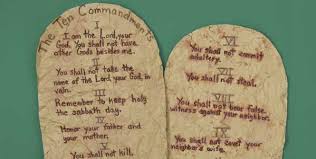 The Ten Commandments
I
I am the Lord, your
God. You shall not have
other Gods besides me.
II
You shall not take
the name of the Lord, your God, in
vain.
III
Remember to keep holy
the sabbath day.
IV
Honor your father and
your mother.
V
You shall not kill.
VI
You shall not commit
adultery.
VII
You shall not steal.
VIII
You shall not bear false
witness against your neighbor.
IX
You shall not covet your
neighbor's wife.